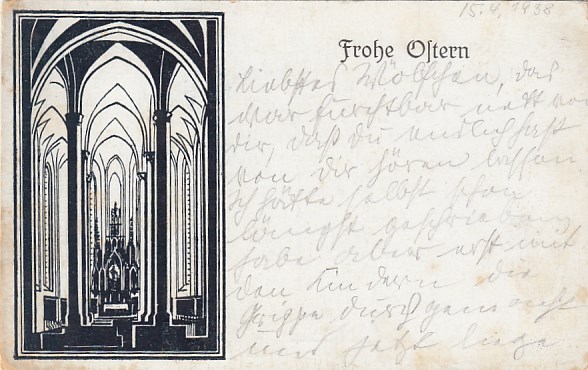 15.4.1938
Frohe Ostern
Liebstes Wölfchen, das
war furchtbar nett von
dir, daß du endlich hast
von dir hören lassen
Ich hätte selbst schon
längst geschrieben,
habe aber erst mit
den Kindern die
Grippe durchgemacht
und jetzt liege